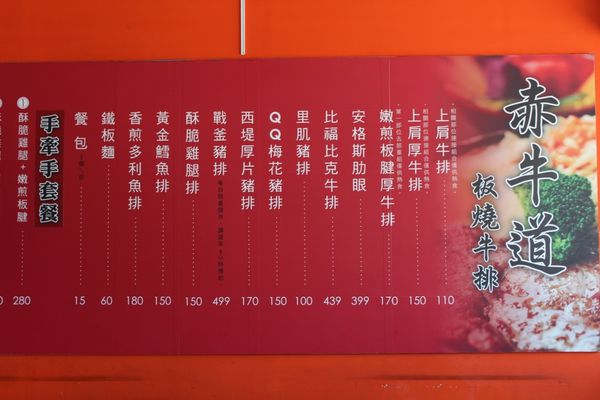 赤牛道
板燒牛排
上肩牛排 110
上肩厚牛排 150
嫩煎板腱厚牛排 170
安格斯肋眼 399
比福比克牛排 439
里肌豬排 100
QQ梅花豬排 150
西堤厚片豬排 170
戰釜豬排 499
酥脆雞腿排 150
黃金鱈魚排 150
香煎多利魚排 180
鐵板麵 60
餐包 15
手牽手套餐
① 酥脆雞腿+嫩煎板腱 280